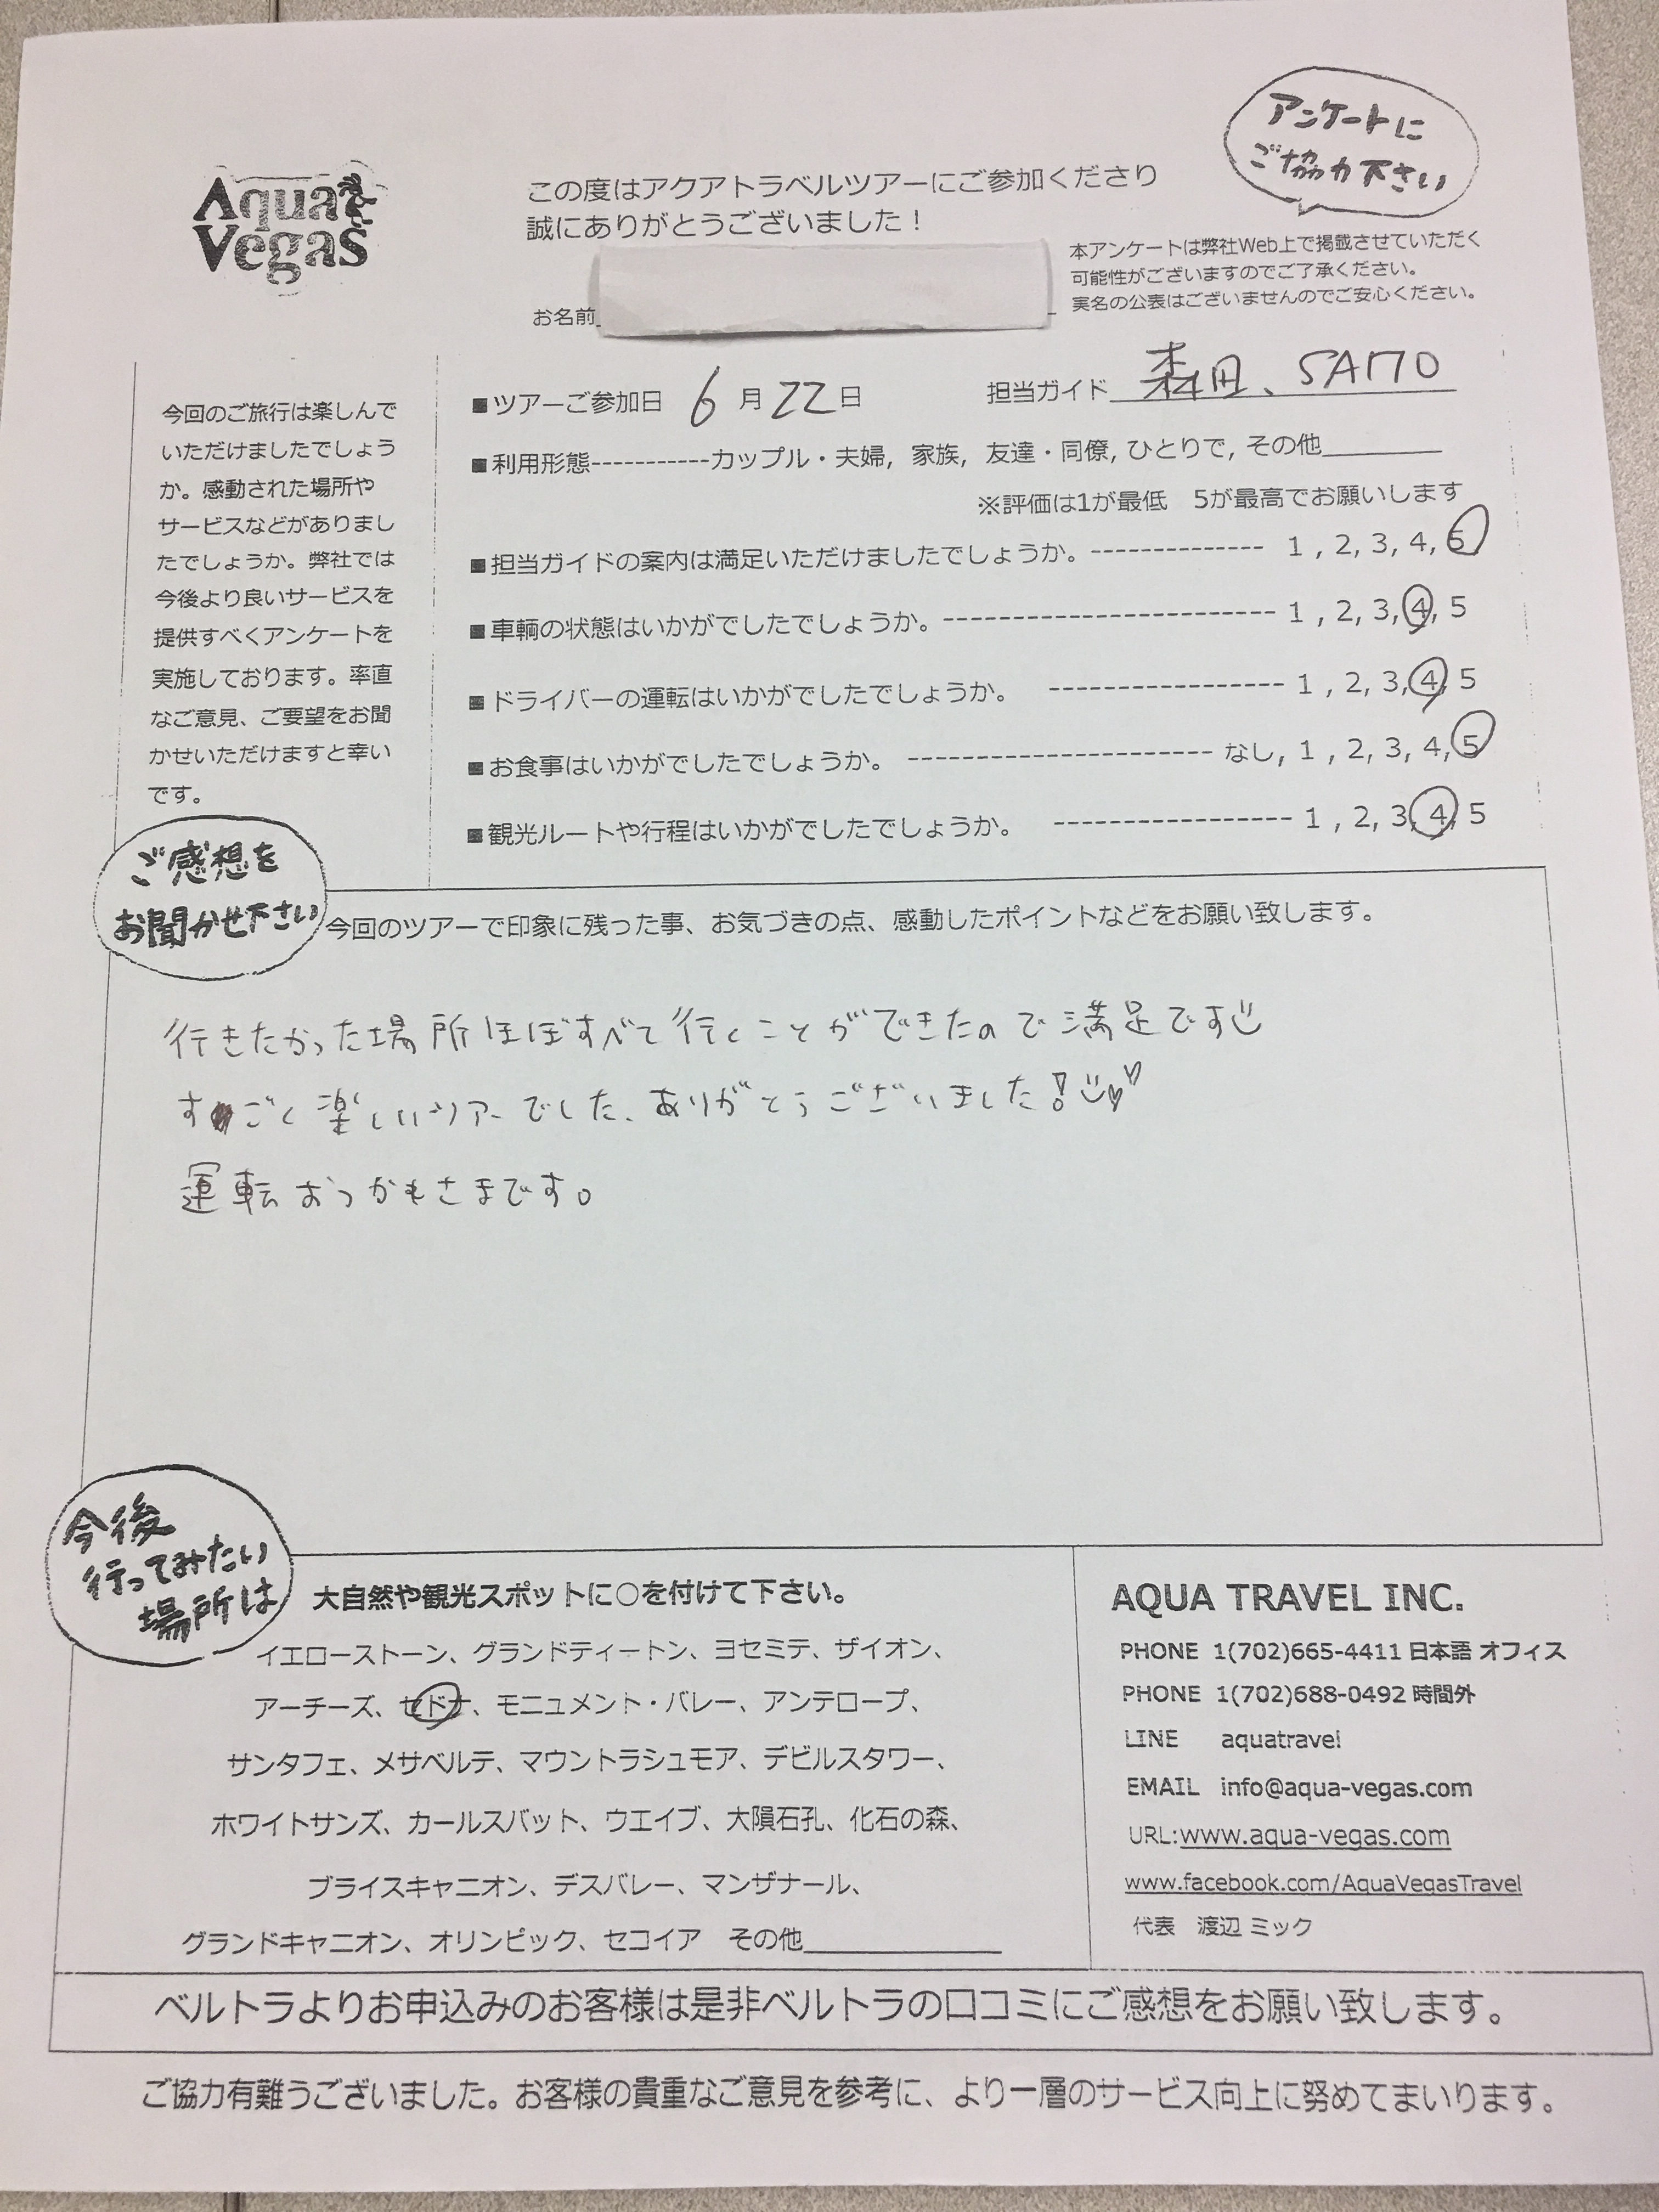 アンケートに
ご協力下さい
Aqua
Vegas
この度はアクアトラベルツアーにご参加くださり
誠にありがとうございました！
本アンケートは弊社Web上で掲載させていただく
可能性がございますのでご了承ください。
実名の公表はございませんのでご安心ください。
お名前
今回のご旅行は楽しんで
いただけましたでしょう
か。感動された場所や
サービスなどがありまし
たでしょうか。弊社では
今後より良いサービスを
提供すべくアンケートを
実施しております。率直
なご意見、ご要望をお聞
かせいただけますと幸い
です。
■ツアーご参加日 6月22日 担当ガイド 森田、SAITO
■利用形態-----------カップル・夫婦, 家族, 友達・同僚, ひとりで, その他________
※評価は1が最低 5が最高でお願いします
■担当ガイドの案内は満足いただけましたでしょうか。-------------- 1 , 2, 3, 4, 5
■車輌の状態はいかがでしたでしょうか。--------------------------- 1 , 2, 3, 4, 5
■ドライバーの運転はいかがでしたでしょうか。 ----------------- 1 , 2, 3, 4, 5
■お食事はいかがでしたでしょうか。 ---------------------- なし, 1 , 2, 3, 4, 5
■観光ルートや行程はいかがでしたでしょうか。 ----------------- 1 , 2, 3, 4, 5
ご感想を
お聞かせ下さい
今回のツアーで印象に残った事、お気づきの点、感動したポイントなどをお願い致します。
行きたかった場所ほぼすべて行くことができたので満足です
すごく楽しいツアーでした、ありがとうございました！
運転おつかれさまです。
今後
行ってみたい
場所は
大自然や観光スポットに○を付けて下さい。
イエローストーン、グランドティートン、ヨセミテ、ザイオン、
アーチーズ、セドナ、モニュメント・バレー、アンテロープ、
サンタフェ、メサベルテ、マウントラシュモア、デビルスタワー、
ホワイトサンズ、カールスバット、ウエイブ、大隕石孔、化石の森、
ブライスキャニオン、デスバレー、マンザナール、
グランドキャニオン、オリンピック、セコイア その他____________
AQUA TRAVEL INC.
PHONE 1(702)665-4411 日本語 オフィス
PHONE 1(702)688-0492 時間外
LINE aquatravel
EMAIL info@aqua-vegas.com
URL:www.aqua-vegas.com
www.facebook.com/AquaVegasTravel
代表 渡辺 ミック
ベルトラよりお申込みのお客様は是非ベルトラの口コミにご感想をお願い致します。
ご協力有難うございました。お客様の貴重なご意見を参考に、より一層のサービス向上に努めてまいります。